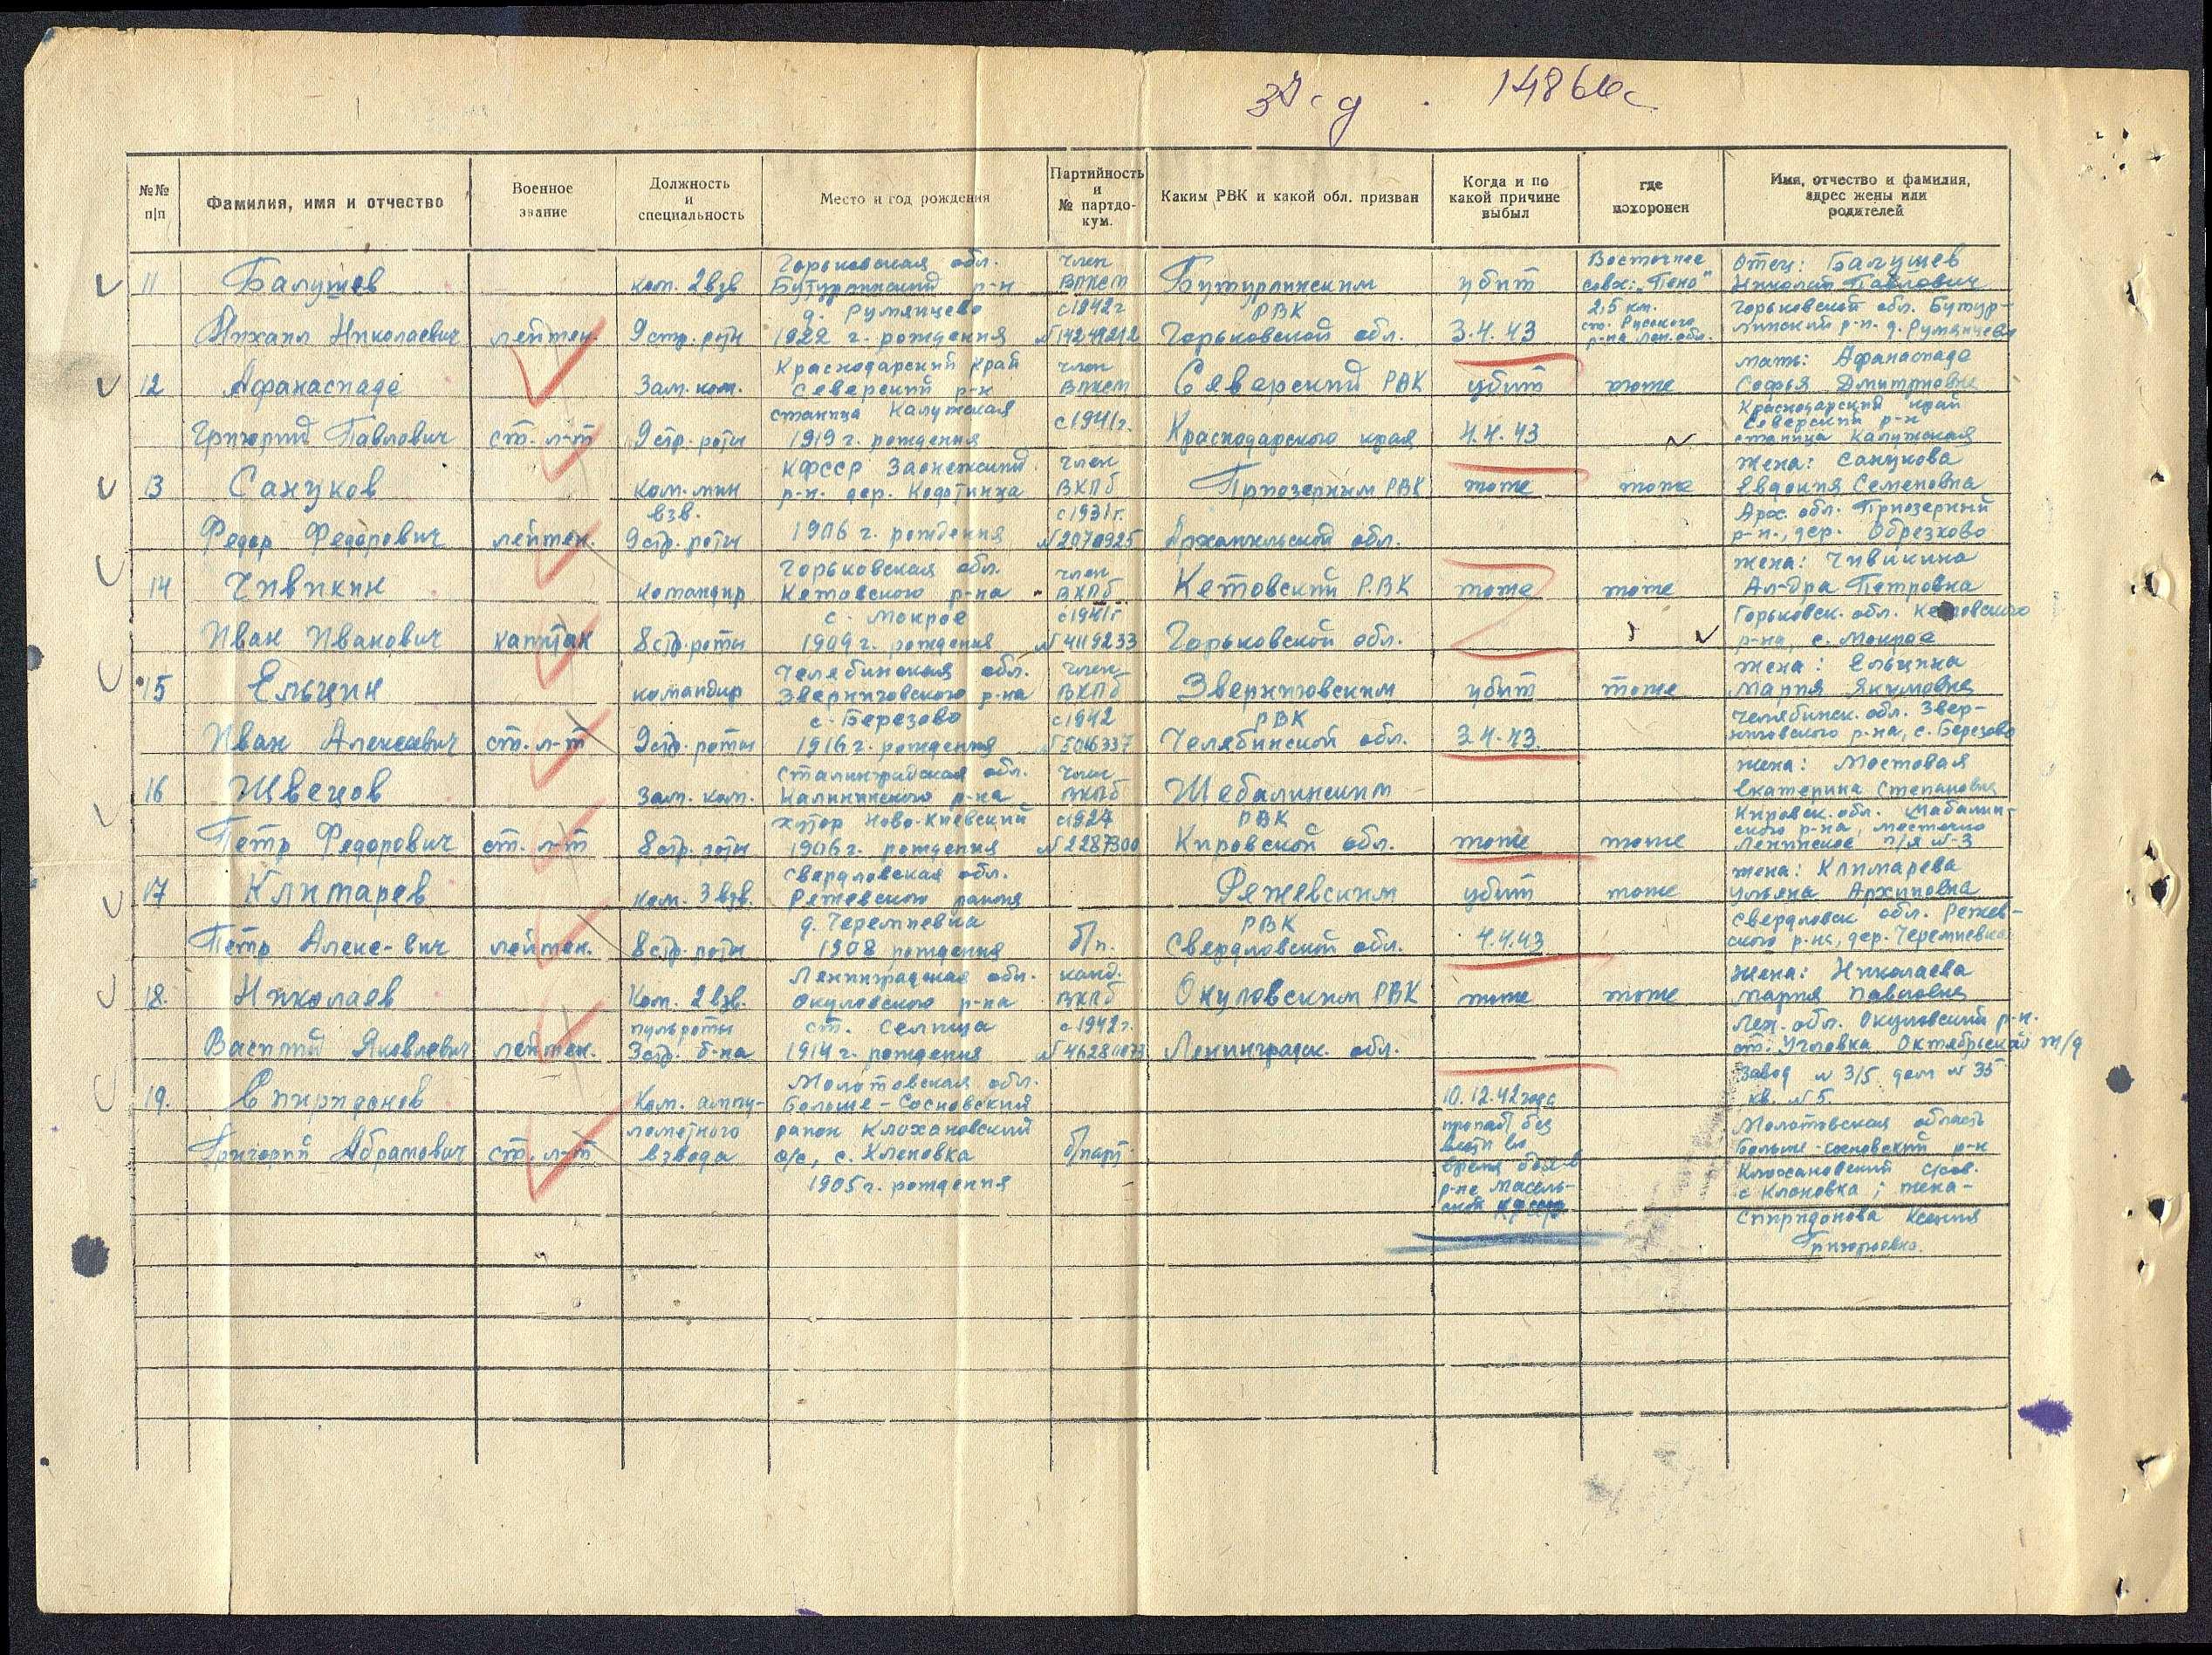 14866с
№№ п|п
Фамилия, имя и отчество
Военное звание
Должность и специальность
Место и год рождения
Партийность и № партдо-кум.
Каким РВК и какой обл. призван
Когда и по какой причине выбыл
где похоронен
Имя, отчество и фамилия, адрес жены или родителей
11
Балушев
Михаил Николаевич
лейтен.
ком. 2 взв
9 стр. роты
Горьковская обл.
Бутурлинский р-н
д. Румянцево
1922 г. рождения
член
ВЛКСМ
с 1942 г
№ 14249212
Бутурлинским
РВК
Горьковской обл.
убит
3.4.43
Восточнее
совх.
2,5 км.
ст. Русского
р-на Лен. обл.
Отец: Балушев
Николай Павлович
Горьковской обл. Бутур-
линский р-н. д. Румянцево
12
Афанаспаде
Григорий Павлович
ст. л-т
Зам. ком.
9 стр. роты
Краснодарский край
Северский р-н
станица Калужская
1919 г. рождения
член
ВЛКСМ
с 1941 г.
Северский РВК
Краснодарского края
убит
4.4.43
тоже
мать: Афанаспаде
Софья Дмитриевна
Краснодарский край
Северский р-н
станица Калужская
13
Сануков
Федор Федорович
лейтен.
ком. мин
взв.
9 стр. роты
КФССР Заонежский
р-н. дер.
1906 г. рождения
член
ВКПб
с 1931 г.
№ 2070925
Приозерным РВК
Архангельской обл.
тоже
тоже
жена: Санукова
Евдокия Семеновна
Арх. обл. Приозерный
р-н, дер. Обрезково
14
Чивикин
Иван Иванович
капитан
командир
8 стр. роты
Горьковская обл.
Кетовского р-на
с. Мокрое
1909 г. рождения
член
ВКПб
с 1941 г
№ 4119233
Кетовский РВК
Горьковской обл.
тоже
тоже
жена: Чивикина
Ал-дра Петровна
Горьковск. обл. Кетовского
р-на, с. Мокрое
15
Ельцин
Иван Алексеевич
ст. л-т
командир
9 стр. роты
Челябинская обл.
Звериноговского р-на
с. Березово
1916 г. рождения
член
ВКПб
с 1942
№ 5016337
Звериноговским
РВК
Челябинской обл.
убит
3.4.43.
тоже
жена: Ельцина
Мария Якимовна
Челябинск. обл. Звер-
ниговского р-на, с. Березово
16
Швецов
Петр Федорович
ст. л-т
Зам. ком.
8 стр. роты
Сталинградская обл.
Калининского р-на
хутор Ново-Киевский
1906 г. рождения
член
ВКПб
с 1927
№ 2287300
Шебалинским
РВК
Кировской обл.
тоже
тоже
жена: Мостовая
Екатерина Степановна
Кировск. обл. Шабалин-
ского р-на, местечко
Ленинское п/я № 3
17
Климарев
Петр Алексе-вич
лейтен.
ком. 3 взв.
8 стр. роты
Свердловская обл.
Режевского района
д. Черемисвка
1908 рождения
б/п.
Режевским
РВК
Свердловской обл.
убит
4.4.43
тоже
жена: Климарева
Ульяна Архиповна
Свердловск обл. Режев-
ского р-на, дер. Черемисвка
18.
Николаев
Василий Яковлевич
лейтен.
Ком. 2 взв.
пульроты
3 стр. б-на
Ленинградская обл.
Окуловского р-на
ст. Селища
1914 г. рождения
канд.
ВКПб
с 1942 г.
Окуловским РВК
Ленинградск. обл.
тоже
тоже
жена: Николаева
Мария Павловна
Лен. обл. Окуловский р-н.
ст. Угловка Октябрьской ж/д
Завод № 315 дом № 35
кв. № 5.
19.
Спиридонов
Григорий Абрамович
ст. л-т
Ком. ампу-
лометного
взвода
Молотовская обл.
Больше-Сосновский
район Клохановский
с/с, с. Кленовка
1905 г. рождения
б/парт
10.12.42 года
пропал без
вести во
время боя в
р-не Масель-
ской КФССР
Молотовская область
Больше-Сосновский р-н
Клохановский с/сов.
с Кленовка; жена-
Спиридонова Ксения
Григорьевна.